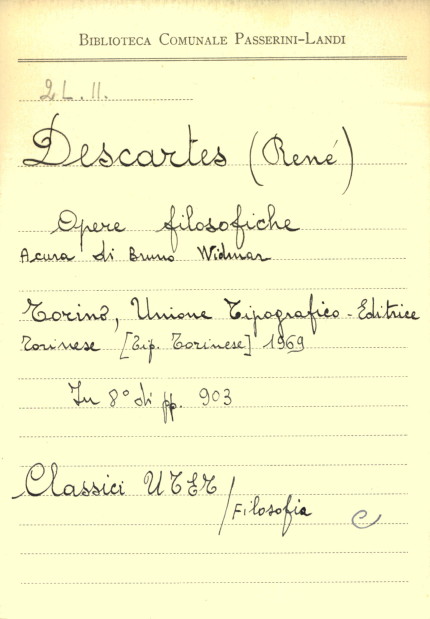 BIBLIOTECA COMUNALE PASSERINI-LANDI
2 L. 11.
Descartes (René)
Opere filosofiche
A cura di Bruno Widmar
Torino, Unione Tipografico-Editrice
Torinese [Tip. Torinese] 1969
In 8° di pp. 903
Classici UTET / Filosofia
C